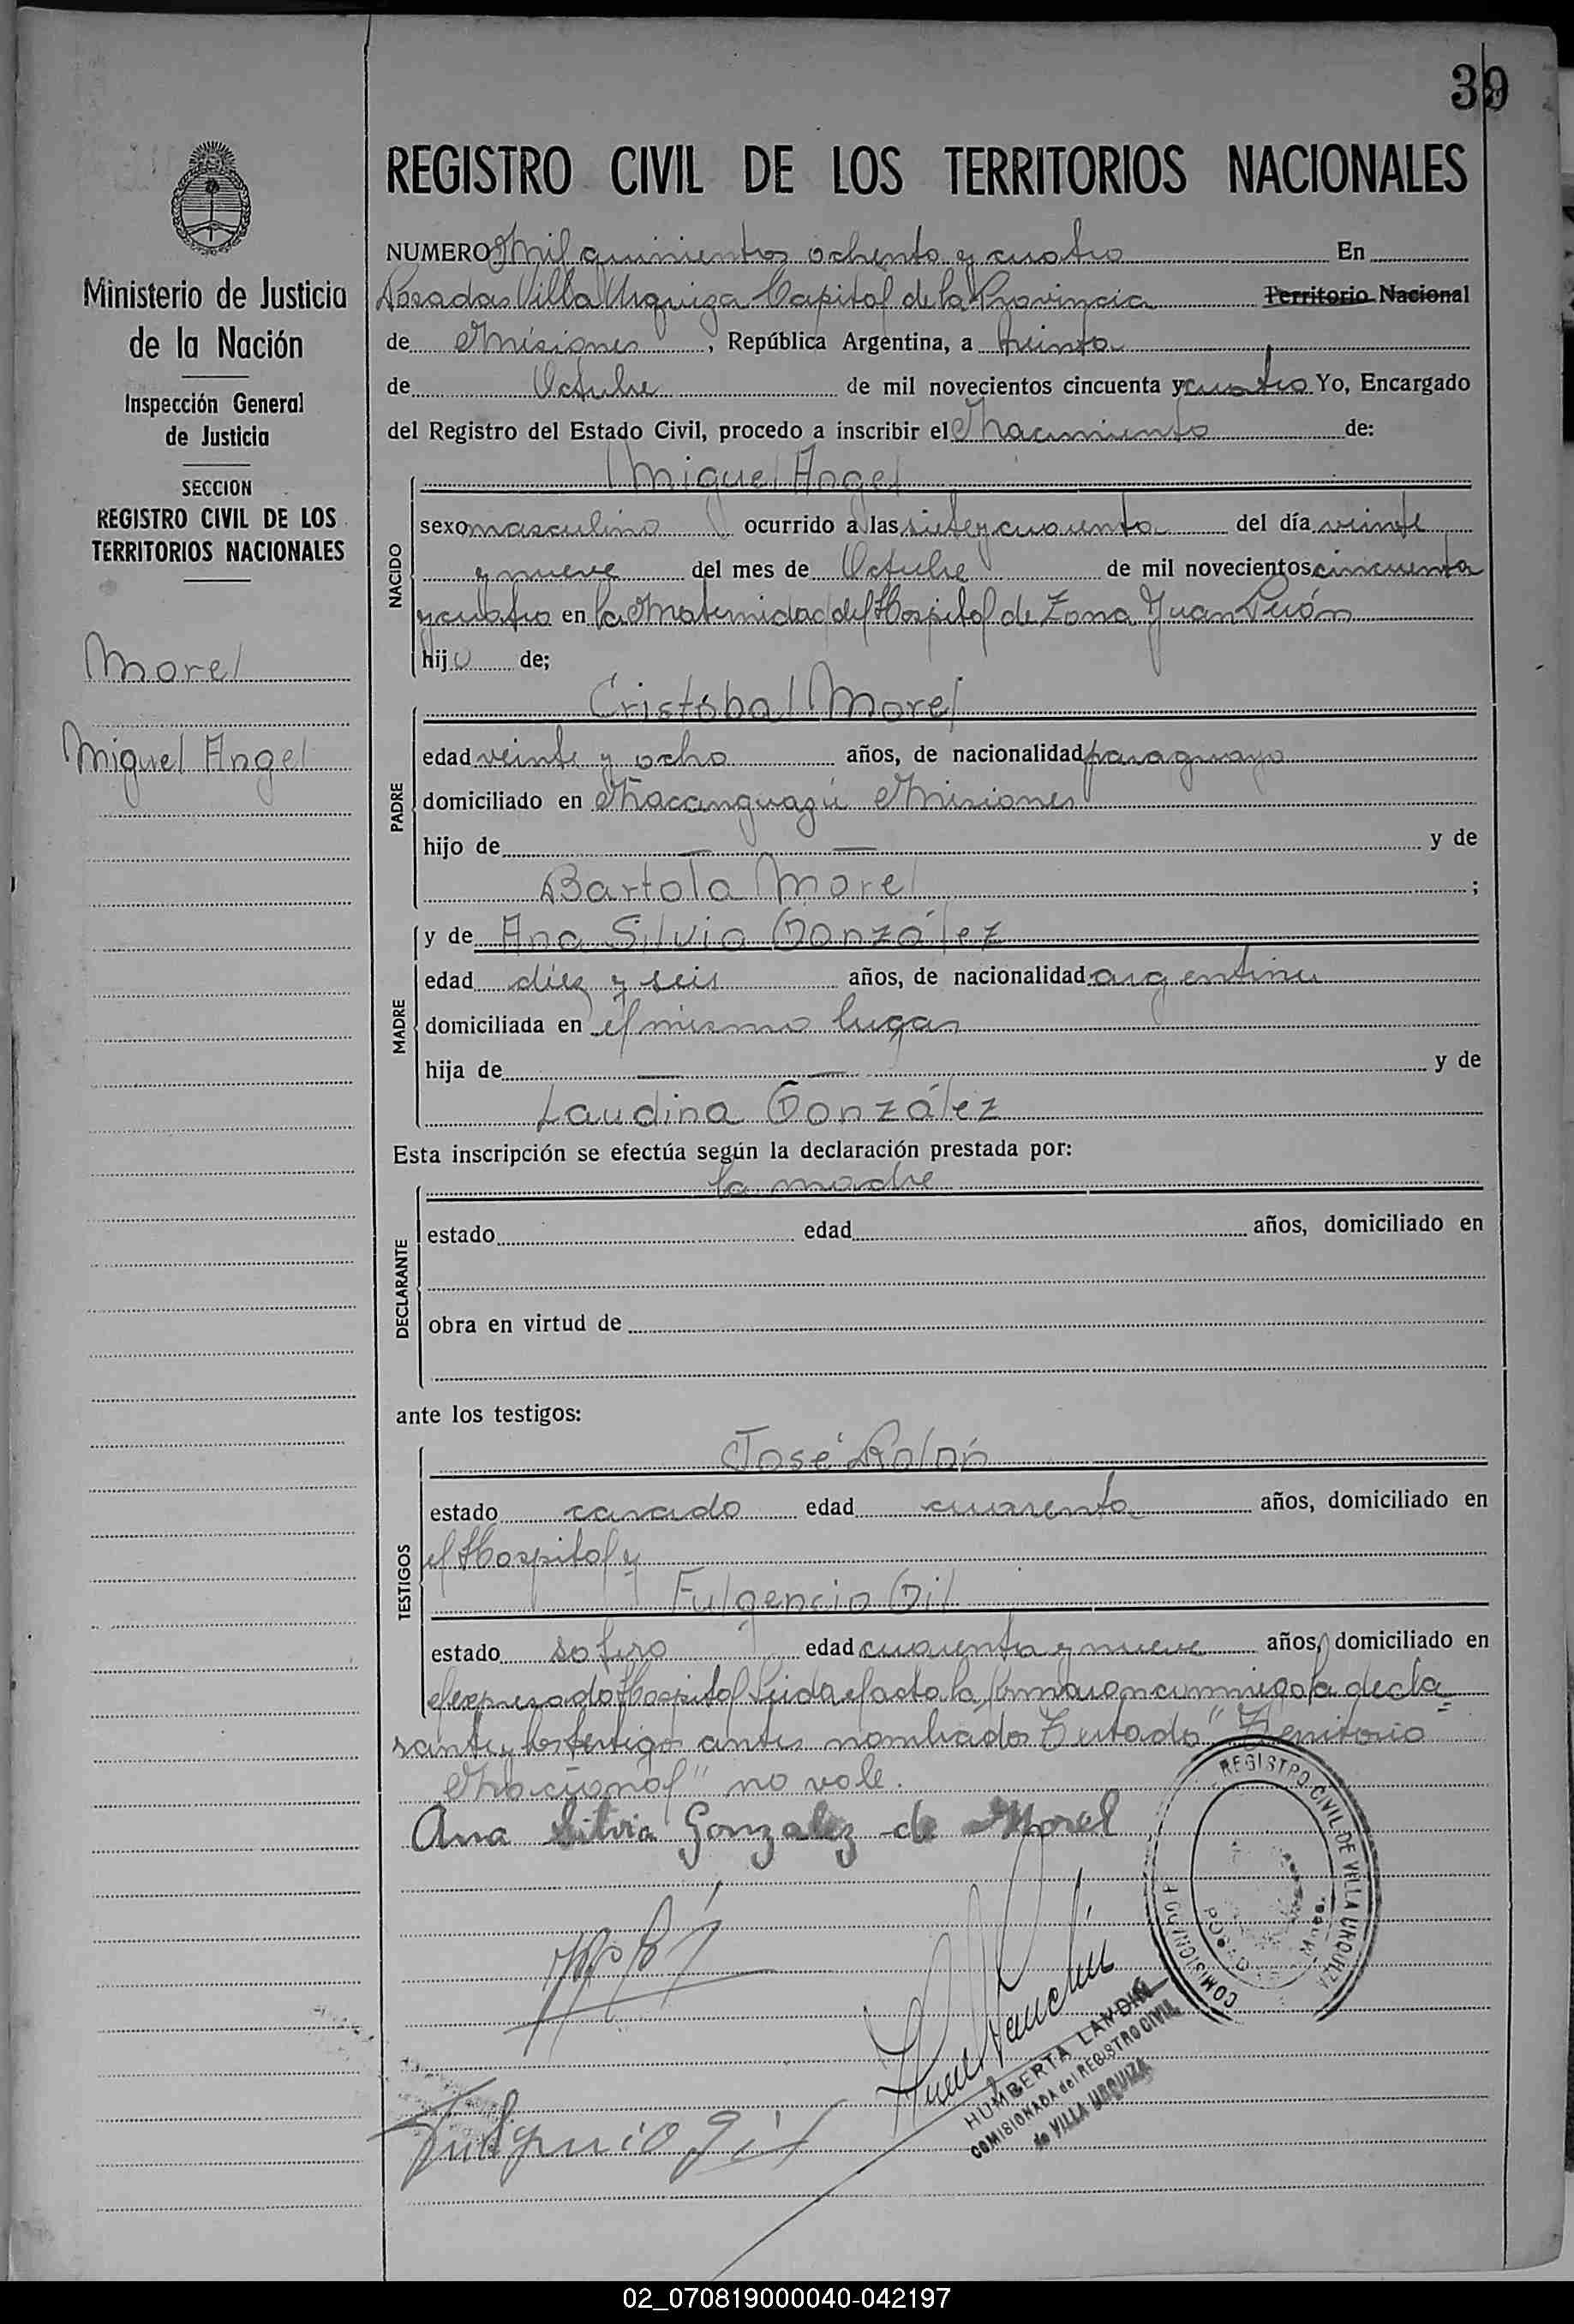 39
REGISTRO CIVIL DE LOS TERRITORIOS NACIONALES
Ministerio de Justicia
de la Nación
Inspección General
de Justicia
SECCION
REGISTRO CIVIL DE LOS
TERRITORIOS NACIONALES
Morel
Miguel Angel
NUMERO Mil quinientos ochenta y cuatro En
Posadas Villa Urquiza Capital de la Provincia Territorio Nacional
de Misiones, República Argentina, a treinta
de Octubre de mil novecientos cincuenta y cuatro Yo, Encargado
del Registro del Estado Civil, procedo a inscribir el Nacimiento de:
NACIDO
Miguel Angel
sexo masculino ocurrido a las siete y cuarenta del día veinte
y nueve del mes de Octubre de mil novecientos cincuenta
y cuatro en la Maternidad del Hospital de Zona Juan Perón
hijo de;
PADRE
Cristóbal Morel
edad veinte y ocho años, de nacionalidad paraguayo
domiciliado en Ñacanguazú Misiones
hijo de — — y de
Bartola Morel ;
MADRE
y de Ana Silvia González
edad diez y seis años, de nacionalidad argentina
domiciliada en el mismo lugar
hija de — — y de
Laudina González
Esta inscripción se efectúa según la declaración prestada por:
DECLARANTE
la madre
estado edad años, domiciliado en
obra en virtud de
ante los testigos:
TESTIGOS
José Rolón
estado casado edad cuarenta años, domiciliado en
el Hospital y
Fulgencio Gil
estado soltero edad cuarenta y nueve años, domiciliado en
el expresado Hospital Leida el acta la firmaron conmigo la decla=
rante y los testigos antes nombrados Testado "Territorio
Nacional" no vale.
Ana Silvia Gonzalez de Morel
REGISTRO CIVIL DE VILLA URQUIZA
POSADAS Mnes.
HUMBERTA LANDIN
COMISIONADA del REGISTRO CIVIL
de VILLA URQUIZA
Fulgencio Gil
02_070819000040-042197